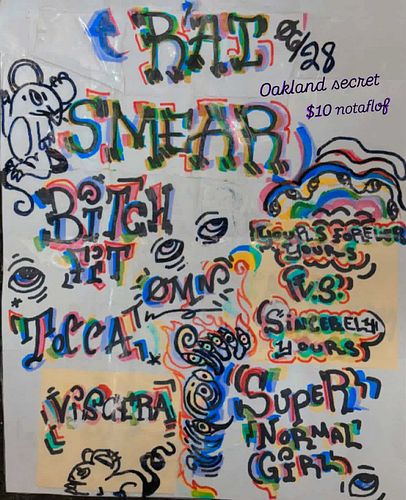 RAT
06/28
Oakland secret
$10 notaflof
SMEAR
BITCH
FIT
YOURS FOREVER
YOURS
V.S.
SINCERELY
YOURS
OMN
TOCCAT
VISCERA
SUPER
NORMAL
GIRL